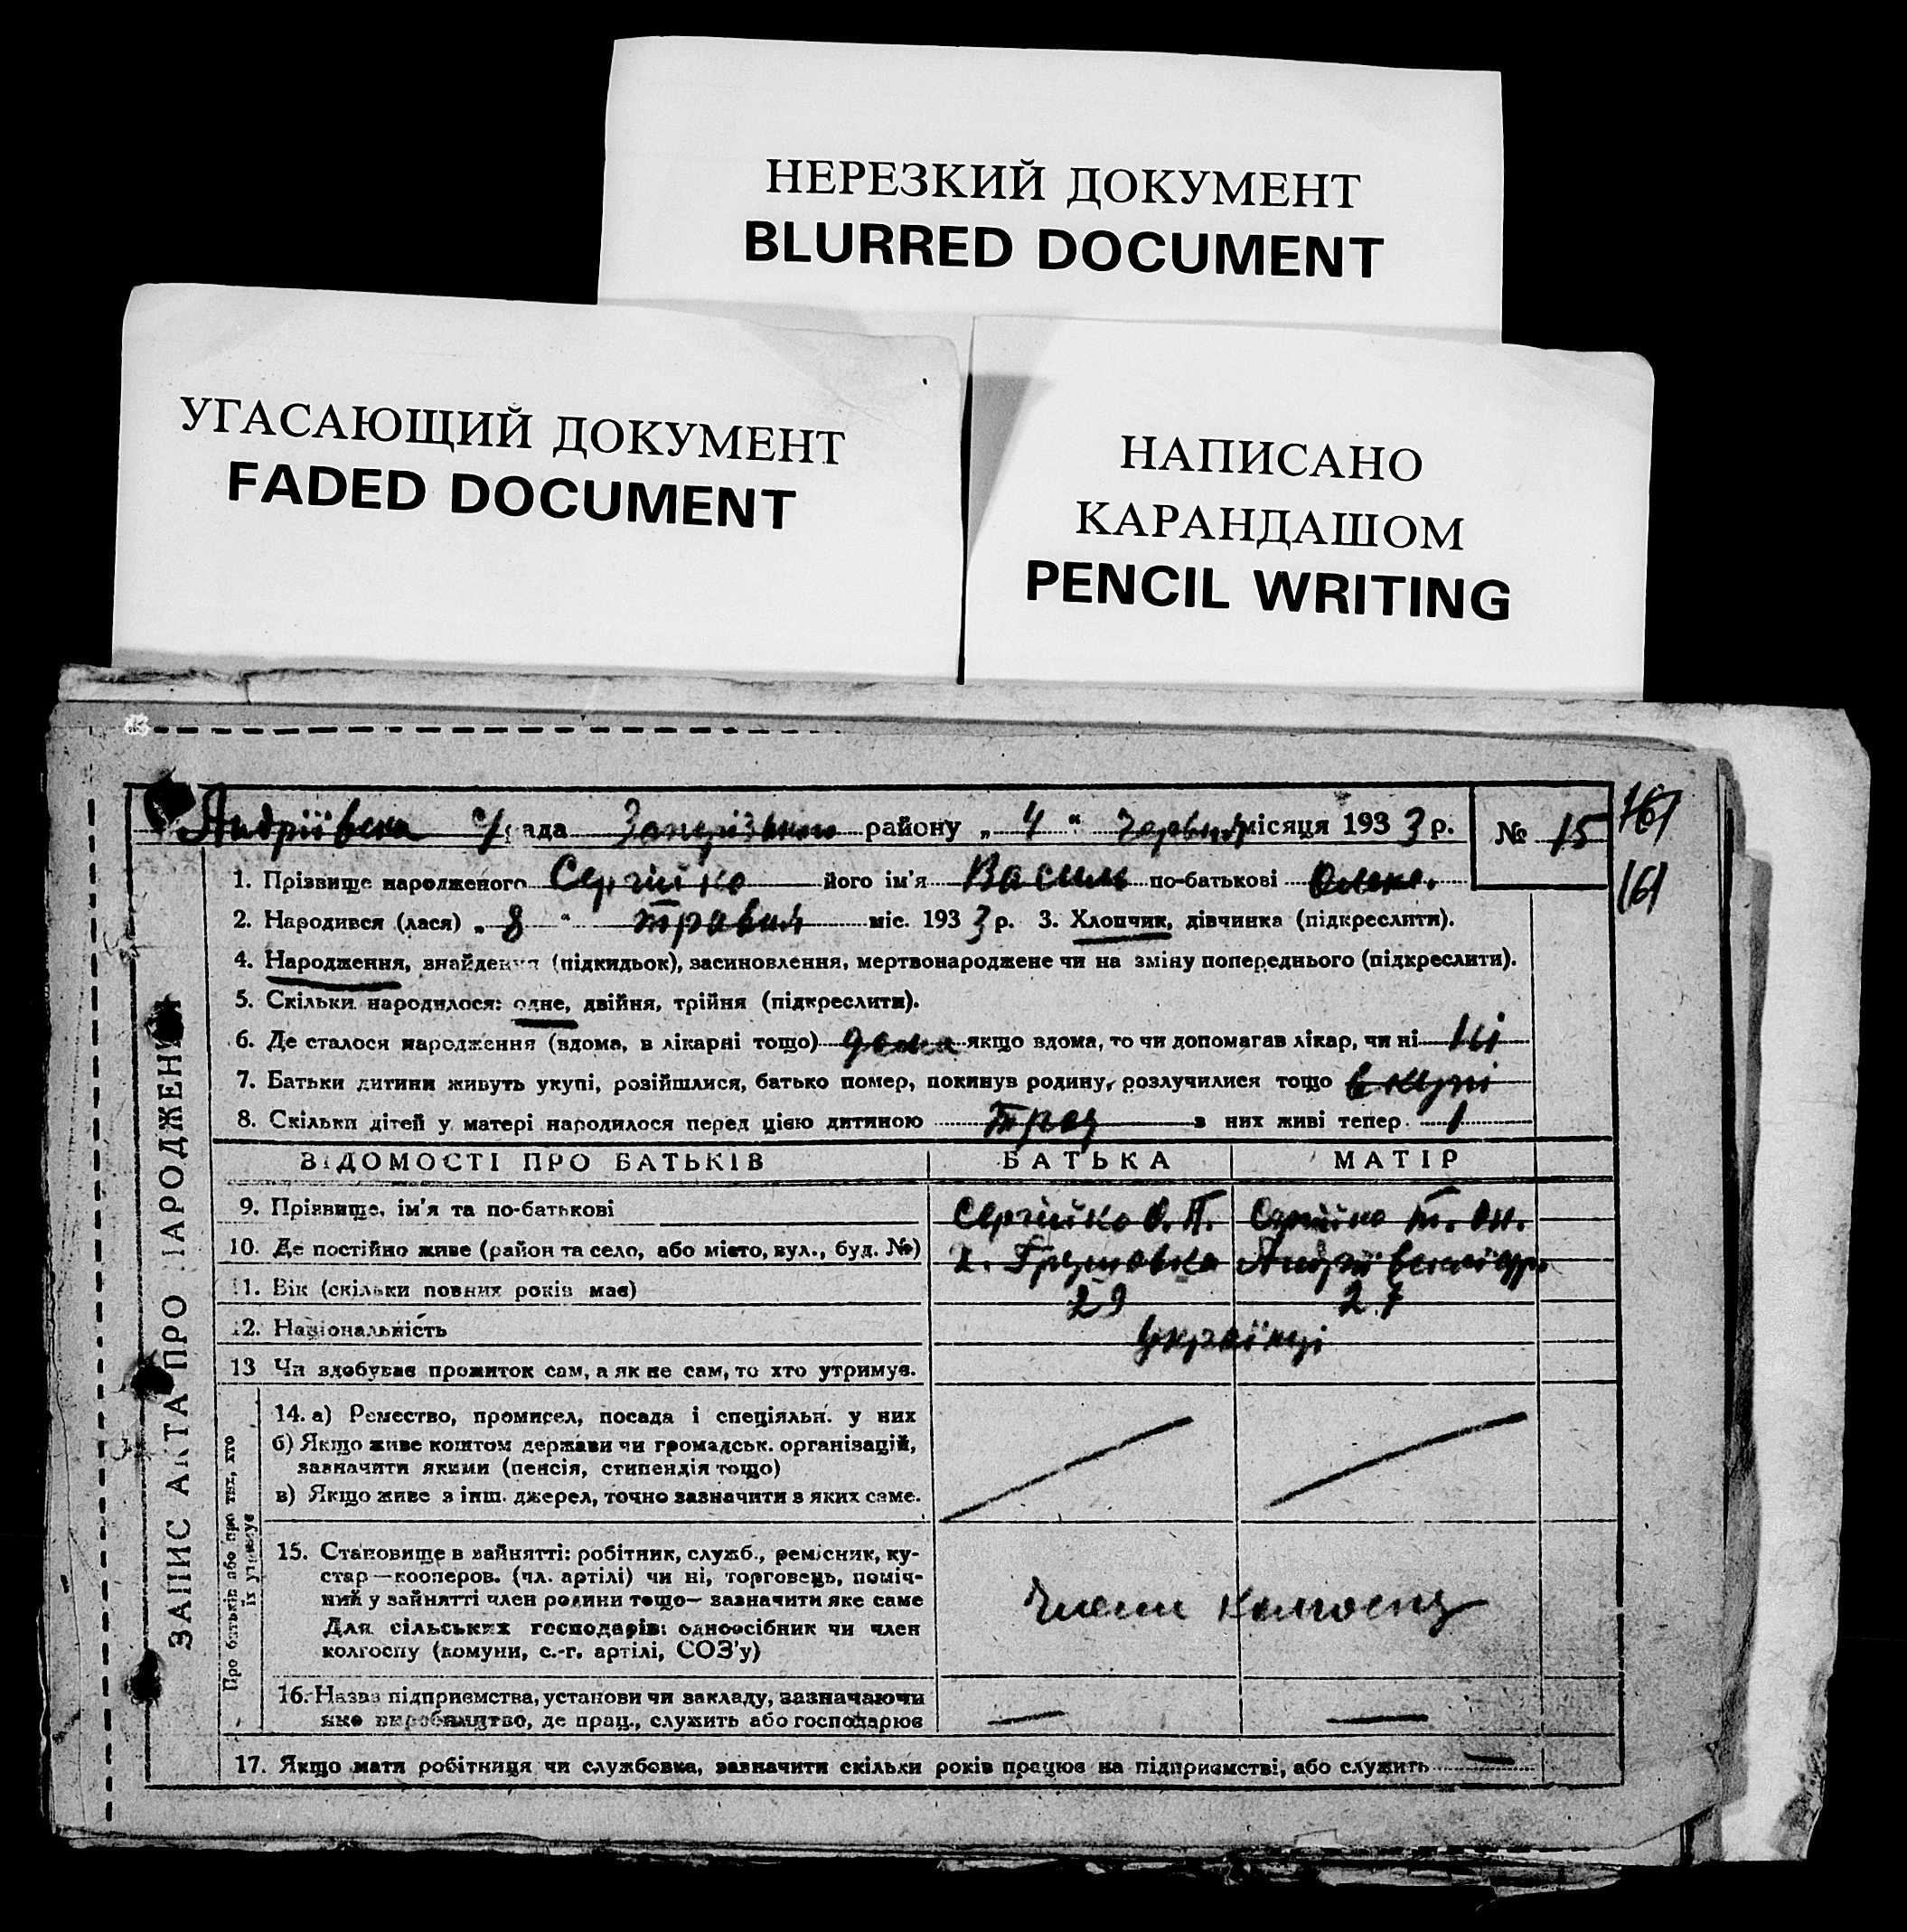 НЕРЕЗКИЙ ДОКУМЕНТ
BLURRED DOCUMENT
УГАСАЮЩИЙ ДОКУМЕНТ
FADED DOCUMENT
НАПИСАНО
КАРАНДАШОМ
PENCIL WRITING
Андріївська с/рада Запорізького району „ 4 “ червня місяця 1933 р. № 15
161
161
1. Прізвище народженого Сергійко його ім'я Василь по-батькові Олекс.
2. Народився (лася) „ 8 “ травня міс. 1933 р. 3. Хлопчик, дівчинка (підкреслити).
4. Народження, знайдення (підкидьок), засиновлення, мертвонароджене чи на зміну попереднього (підкреслити).
5. Скільки народилося: одне, двійня, трійня (підкреслити).
6. Де сталося народження (вдома, в лікарні тощо) дома якщо вдома, то чи допомагав лікар, чи ні ні
7. Батьки дитини живуть укупі, розійшлися, батько помер, покинув родину, розлучилися тощо в купі
8. Скільки дітей у матері народилося перед цією дитиною троє з них живі тепер 1
ВІДОМОСТІ ПРО БАТЬКІВ БАТЬКА МАТІР
9. Прізвище, ім'я та по-батькові Сергійко О. П. Сергійко Т. Он.
10. Де постійно живе (район та село, або місто, вул., буд. №) х. Грушовка
11. Вік (скільки повних років має) 29 27
12. Національність Українці
13 Чи здобуває прожиток сам, а як не сам, то хто утримує.
14. а) Ремество, промисел, посада і спеціяльн. у них
б) Якщо живе коштом держави чи громадськ. організацій,
зазначити якими (пенсія, стипендія тощо)
в) Якщо живе з інш. джерел, точно зазначити з яких саме.
15. Становище в зайнятті: робітник, служб., ремісник, ку-
стар—кооперов. (чл. артілі) чи ні, торговець, поміч-
ний у зайнятті член родини тощо— зазначити яке саме
Для сільських господарів: одноосібник чи член
колгоспу (комуни, с.-г. артілі, СОЗ'у)
Члени колгоспу
16. Назва підприємства, установи чи закладу, зазначаючи
яке виробництво, де прац., служить або господарює
17. Якщо мати робітниця чи службовка, зазначити скільки років працює на підприємстві, або служить
ЗАПИС АКТА ПРО НАРОДЖЕННЯ
Про батьків або про тих, хто
їх утримує